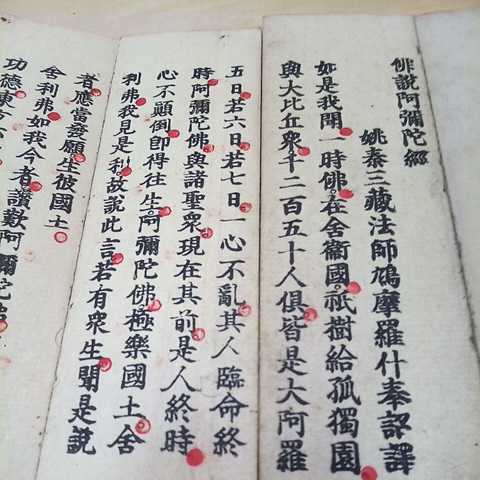 佛說阿彌陀經
姚秦三藏法師鳩摩羅什奉詔譯
如是我聞一時佛在舍衞國祇樹給孤獨園
與大比丘衆千二百五十人俱皆是大阿羅
五日若六日若七日一心不亂其人臨命終
時阿彌陀佛與諸聖衆現在其前是人終時
心不顛倒即得往生阿彌陀佛極樂國土舍
利弗我見是利故說此言若有衆生聞是說
者應當發願生彼國土
舍利弗如我今者讚歎阿彌陀
功德東